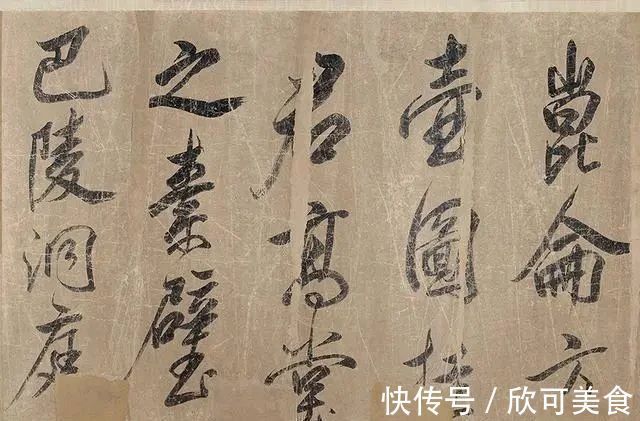 崑侖方
壺圖挂
君高堂
之素壁
巴陵洞庭
快传号／欣可美食